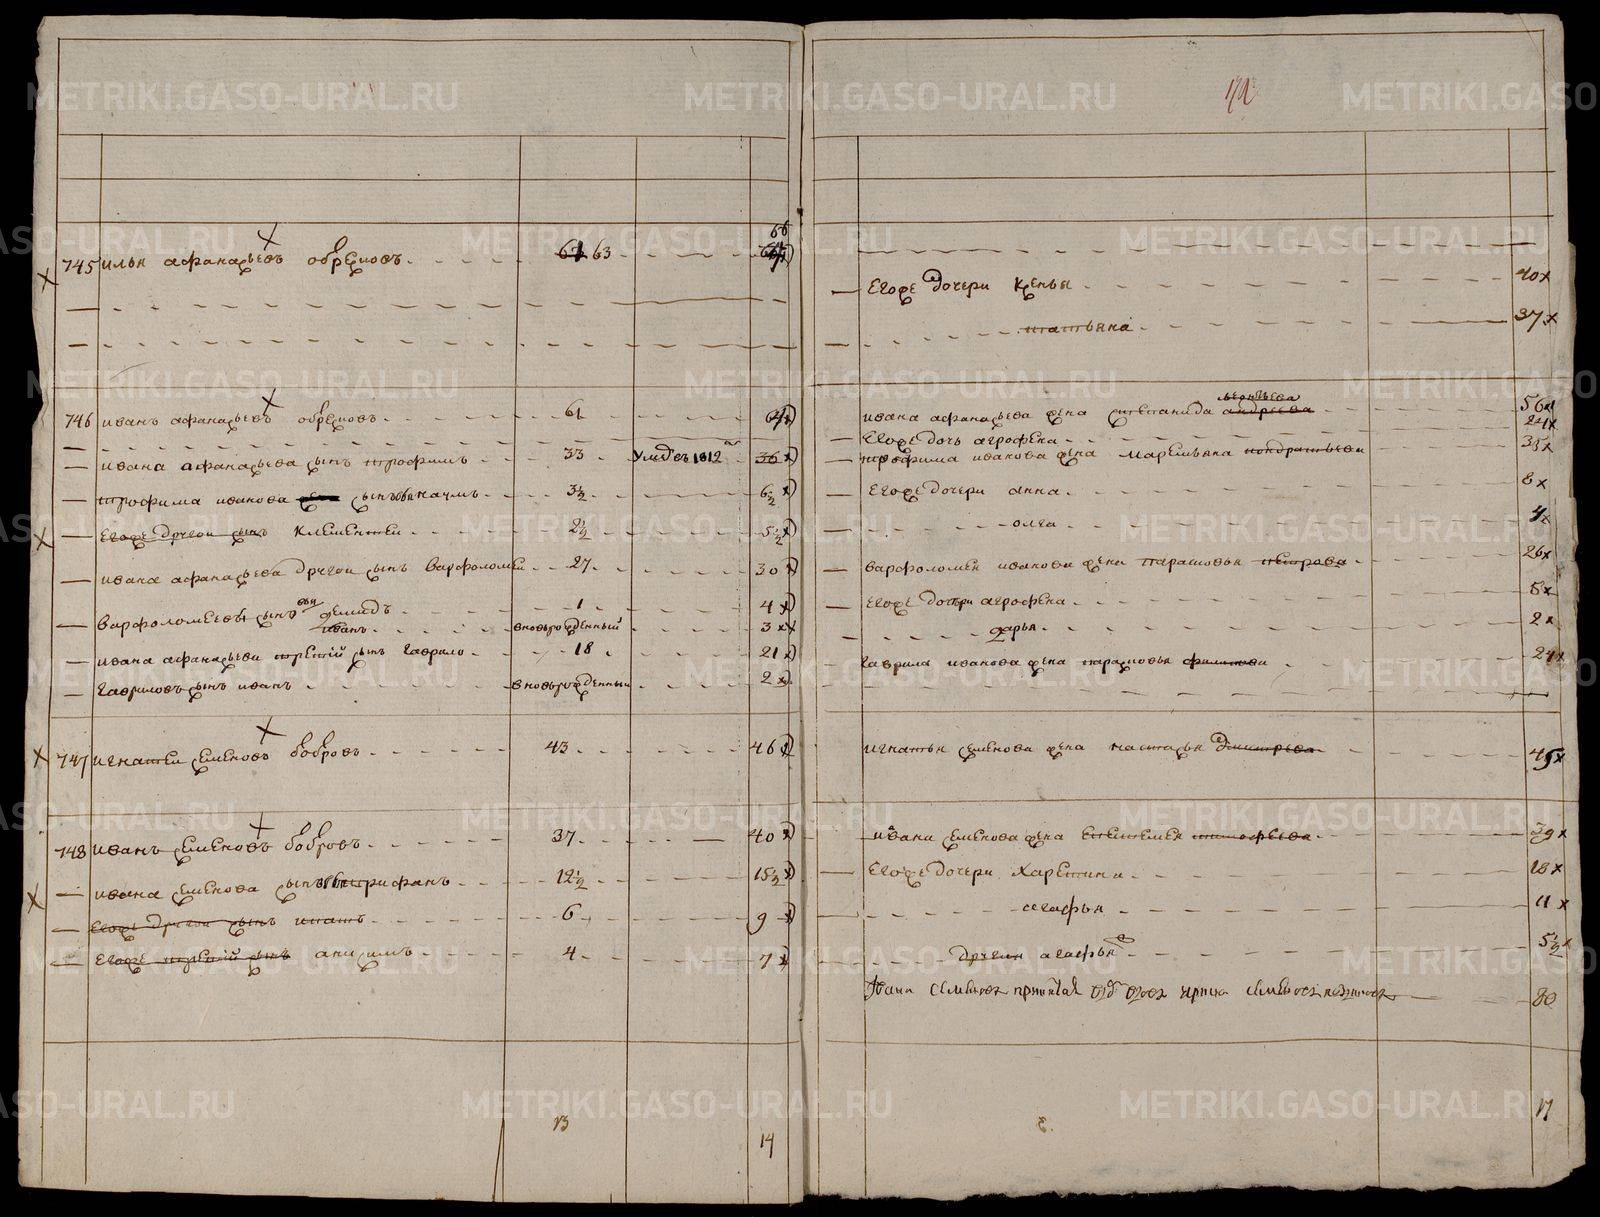 METRIKI.GASO-URAL.RU
745 илья афанасьевъ обремовъ 63 66
746 иванъ афанасьевъ обремовъ 61
ивана афанасьева сынъ трофимъ 33 умре въ 1812 36
трофима иванова сынъ 3½ 6½
Егоже другой сынъ клементей 2½ 5½
ивана афанасьева другой сынъ варфоломей 27 30
варфоломеевы сынъ демидъ 1 4
иванъ вновьрожденный 3
ивана афанасьева третий сынъ гаврило 18 21
гавриловъ сынъ иванъ вновьрожденный 2
747 игнатей семеновъ бобровъ 43 46
748 иванъ семеновъ бобровъ 37 40
ивана семенова сынъ трифанъ 12½ 15½
Егоже другой сынъ игнатъ 6 9
Егоже третий сынъ анисимъ 4 7
13
14
Егоже дочери ксенья 40
татьяна 37
ивана афанасьева жена степанида андреева 56
Егоже дочь агрофена 24
трофима иванова жена маремьяна кондратьева 35
Егоже дочери анна 8
олга 4
варфоломея иванова жена парасковья петрова 26
Егоже дочери агрофена 5
дарья 2
гаврила иванова жена парасковья филипова 24
игнатья семенова жена настасья дмитрева 45
ивана семенова жена тимофеева 39
Егоже дочери Харетина 18
агафья 11
другая агафья 5½
17